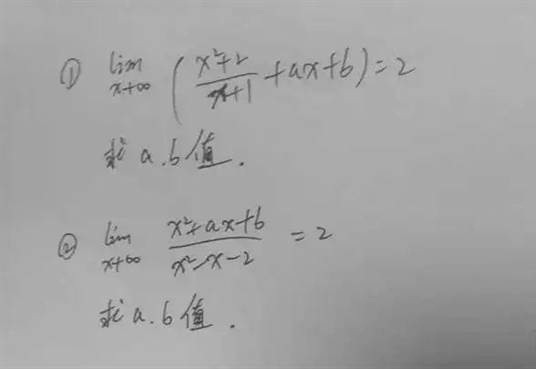 ① lim x→∞ (x²+2/x+1 + ax + b) = 2
求 a.b 值.
② lim x→∞ x²+ax+b/x²-x-2 = 2
求 a.b 值.